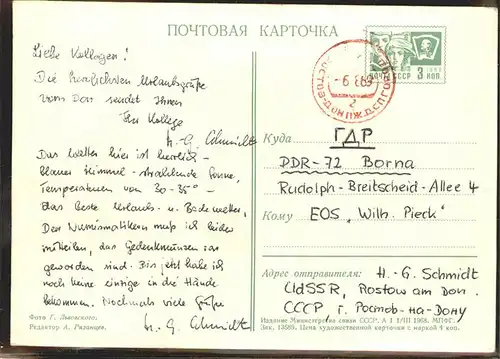 ПОЧТОВАЯ КАРТОЧКА
Liebe Kollegen!
Die herzlichsten Urlaubsgrüße
vom Don sendet Ihnen
Ihr Kollege
H.-G. Schmidt
Das Wetter hier ist herrlich -
blauer Himmel - strahlende Sonne,
Temperaturen von 30-35° -
das beste Urlaubs- u. Badewetter.
Den Numismatikern muß ich leider
mitteilen, das Gedenkmünzen rar
geworden sind. Bin jetzt habe ich
noch keine einzige in die Hände
bekommen. Nochmals viele Grüße
H.-G. Schmidt
Фото Г. Львовского.
Редактор А. Рязанцев.
ПОЧТА СССР 3 КОП.
-6 8 69
2
Куда ГДР
DDR-72 Borna
Rudolph-Breitscheid-Allee 4
Кому EOS „Wilh. Pieck“
Адрес отправителя: H.-G. Schmidt
UdSSR, Rostow am Don.
СССР г. Ростов-на-Дону
Издание Министерства связи СССР. А 1 1/III 1968. МПФГ.
Зак. 13595. Цена художественной карточки с маркой 4 коп.